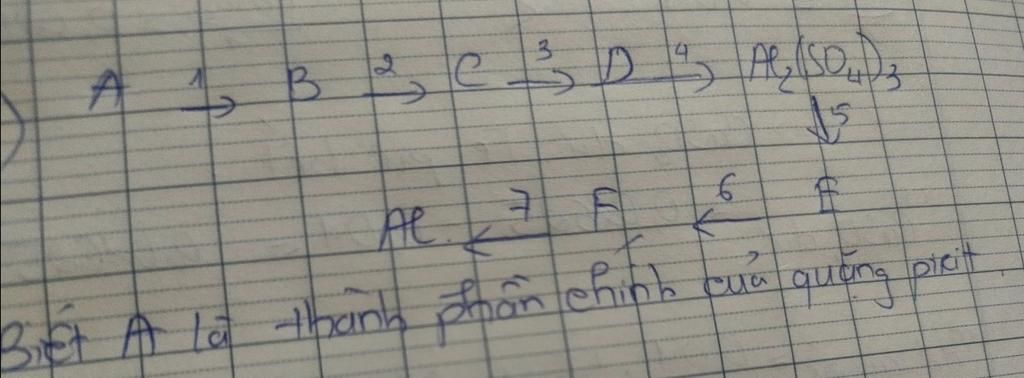 A 1→ B 2→ C 3→ D 4→ Al2(SO4)3
↓5
Al ←7 F ←6 E
Biết A là thành phần chính của quặng pirit